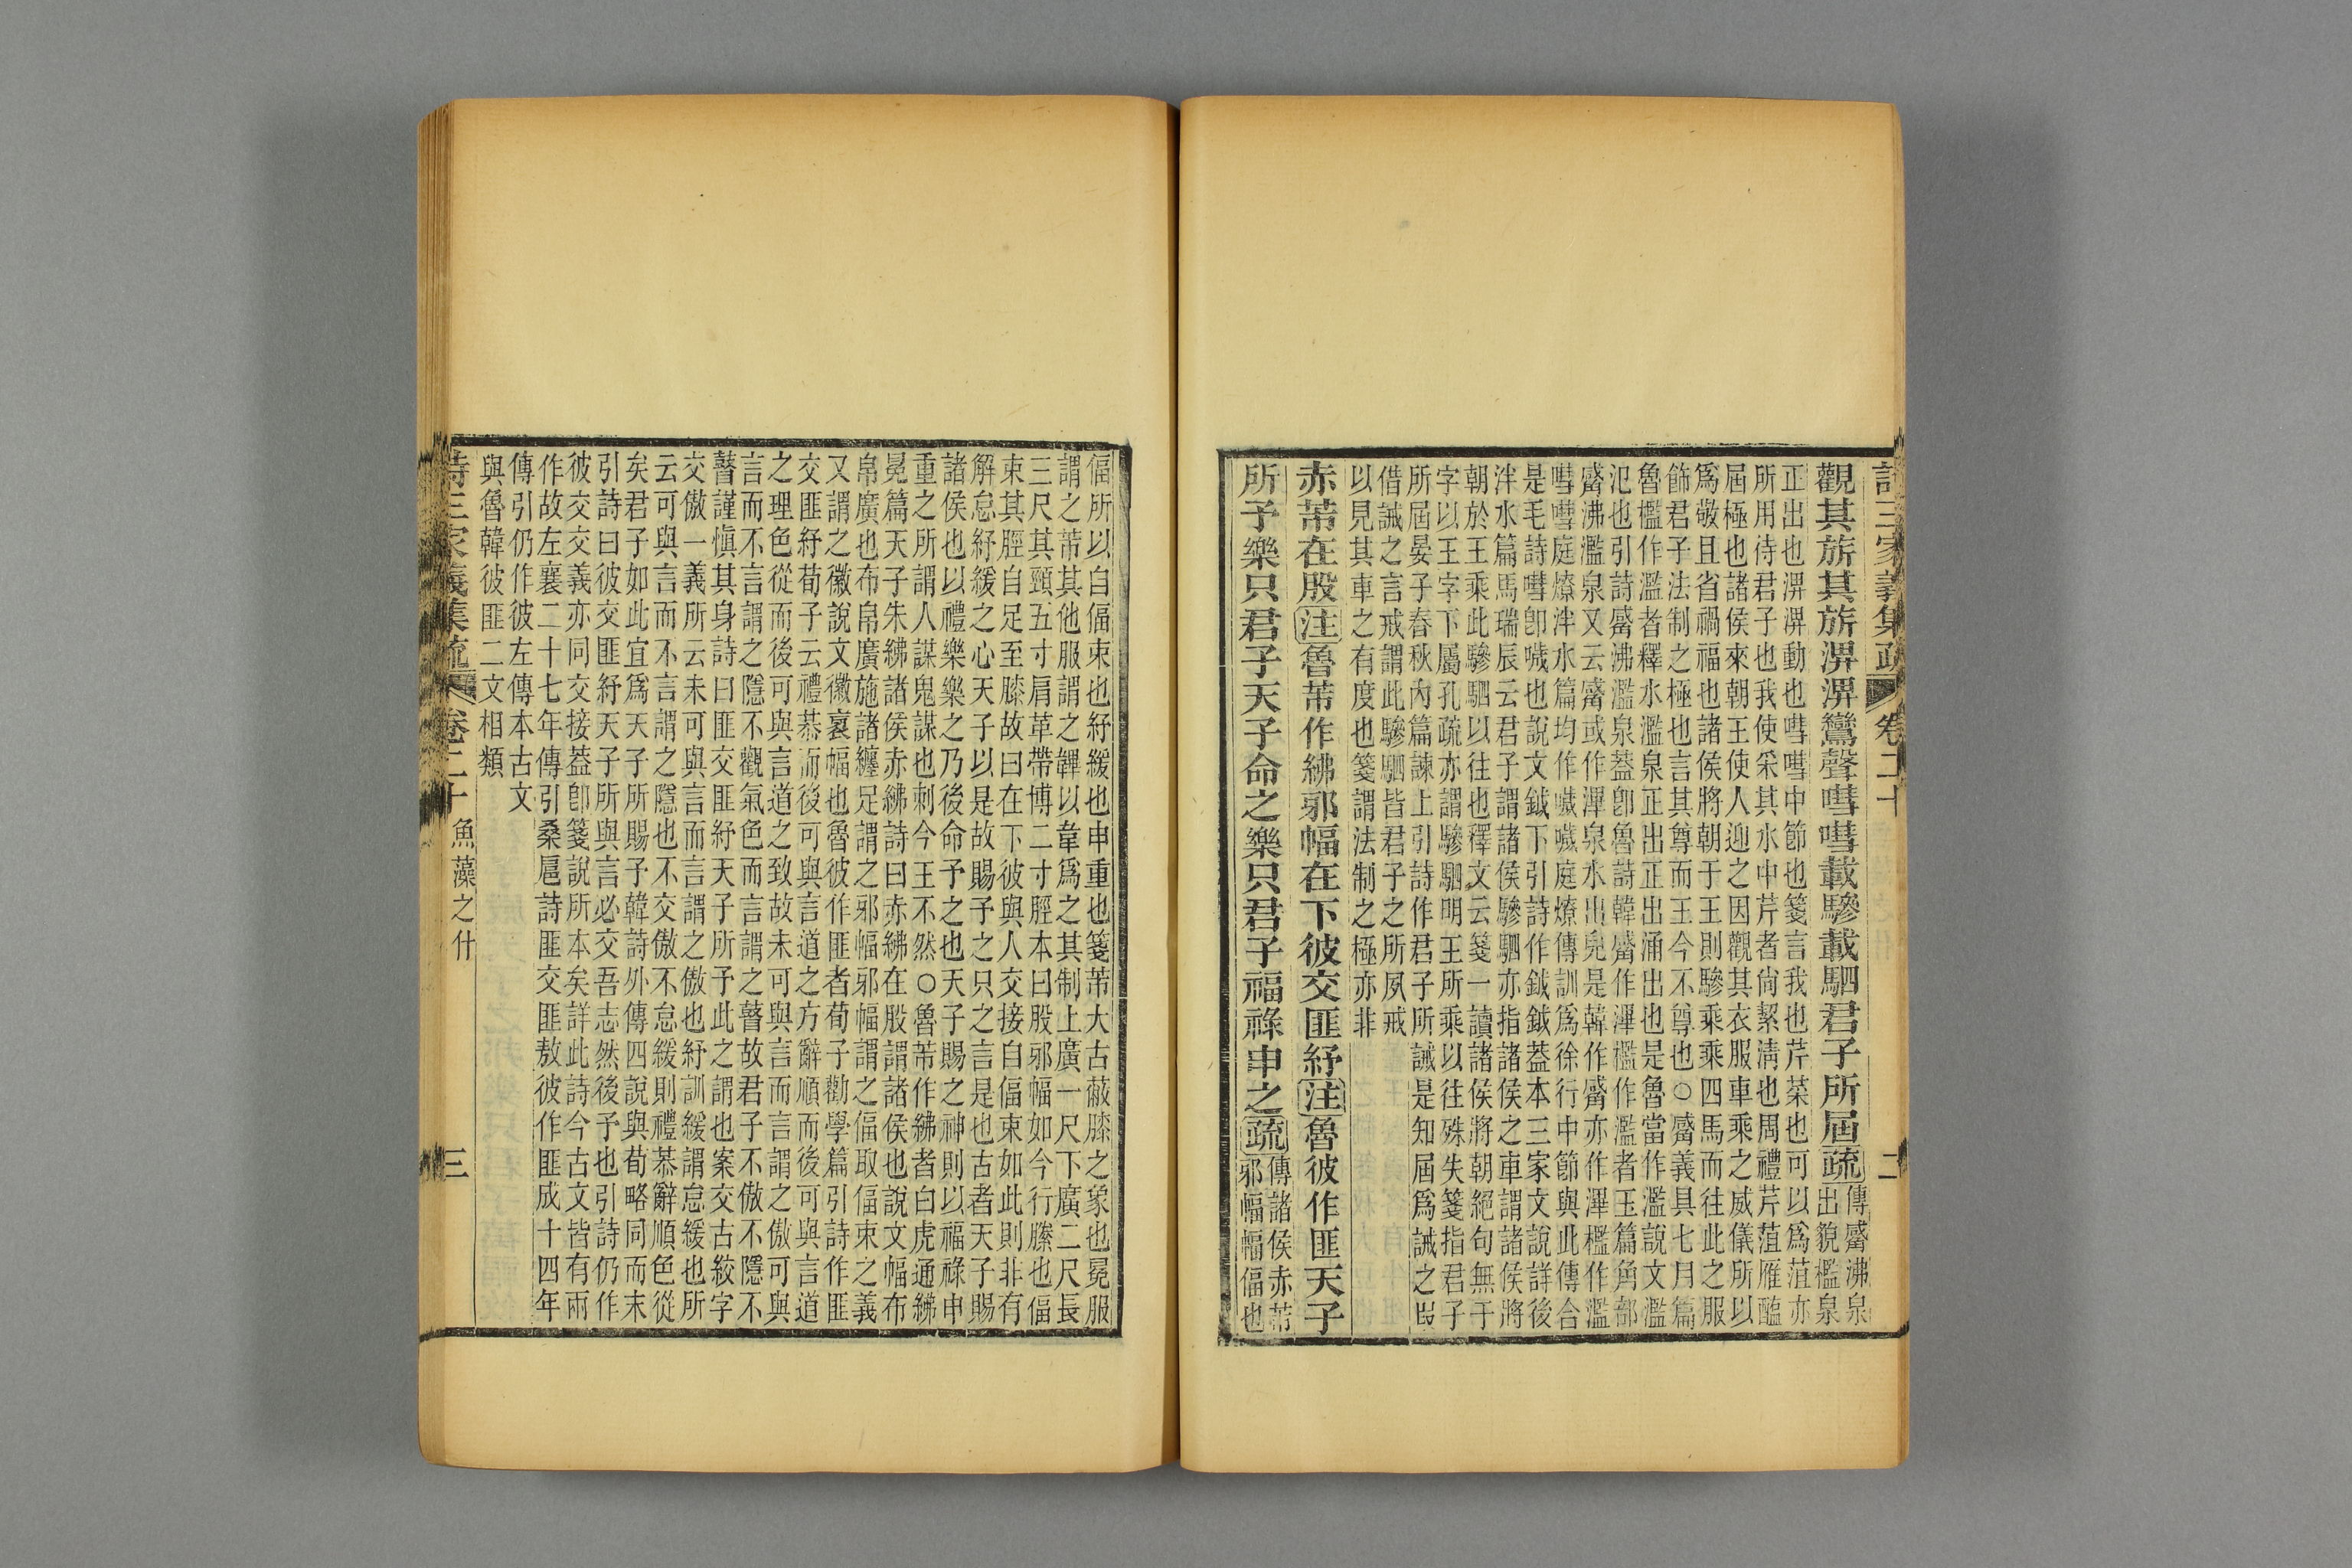 詩三家義集疏 卷二十 二
觀其旂其旂淠淠鸞聲嘒嘒載驂載駟君子所屆疏傳觱沸泉
出貌檻泉
正出也淠淠動也嘒嘒中節也箋言我也芹菜也可以爲菹亦
所用待君子也我使采其水中芹者尙絜淸也周禮芹菹雁醢
屆極也諸侯來朝王使人迎之因觀其衣服車乘之威儀所以
爲敬且省禍福也諸侯將朝于王則驂乘乘四馬而往此之服
飾君子法制之極也言其尊而王今不尊也○觱義具七月篇
魯檻作濫者釋水濫泉正出正出涌出也是魯當作濫說文濫
氾也引詩觱沸濫泉蓋卽魯詩韓觱作滭檻作濫者玉篇角部
觱沸濫泉又云觱或作滭泉水出皃是韓作觱亦作滭檻作濫
嘒嘒庭燎泮水篇均作噦噦庭燎傳訓爲徐行中節與此傳合
是毛詩嘒卽噦也說文鉞下引詩作鉞鉞蓋本三家文說詳後
泮水篇馬瑞辰云君子謂諸侯驂駟亦指諸侯之車謂諸侯將
朝於王乘此驂駟以往也釋文云箋一讀諸侯將朝絕句無于
字以王字下屬孔疏亦謂驂駟明王所乘以往殊失箋指君子
所屆晏子春秋內篇諫上引詩作君子所誡是知屆爲誡之叚
借誡之言戒謂此驂駟皆君子之所夙戒
以見其車之有度也箋謂法制之極亦非
赤芾在股注魯芾作紼邪幅在下彼交匪紓注魯彼作匪天子
所予樂只君子天子命之樂只君子福祿申之疏傳諸侯赤芾
邪幅幅偪也
偪所以自偪束也紓緩也申重也箋芾大古蔽膝之象也冕服
謂之芾其他服謂之韠以韋爲之其制上廣一尺下廣二尺長
三尺其頸五寸肩革帶博二寸脛本曰股邪幅如今行縢也偪
束其脛自足至膝故曰在下彼與人交接自偪束如此則非有
解怠紓緩之心天子以是故賜予之只之言是也古者天子賜
諸侯也以禮樂樂之乃後命予之也天子賜之神則以福祿申
重之所謂人謀鬼謀也刺今王不然○魯芾作紼者白虎通紼
冕篇天子朱紼諸侯赤紼詩曰赤紼在股謂諸侯也說文幅布
帛廣也布帛廣施諸纏足謂之邪幅邪幅謂之偪取偪束之義
又謂之徽說文徽衺幅也魯彼作匪者荀子勸學篇引詩作匪
交匪紓荀子云禮恭而後可與言道之方辭順而後可與言道
之理色從而後可與言道之致故未可與言而言謂之傲可與
言而不言謂之隱不觀氣色而言謂之瞽故君子不傲不隱不
瞽謹愼其身詩曰匪交匪紓天子所予此之謂也案交古絞字
交傲一義所云未可與言而言謂之傲也紓訓緩謂怠緩也所
云可與言而不言謂之隱也不交傲不怠緩則禮恭辭順色從
矣君子如此宜爲天子所賜予韓詩外傳四說與荀略同而末
引詩曰彼交匪紓天子所與言必交吾志然後予也引詩仍作
彼交交義亦同交接蓋卽箋說所本矣詳此詩今古文皆有兩
作故左襄二十七年傳引桑扈詩匪交匪敖彼作匪成十四年
傳引仍作彼左傳本古文
與魯韓彼匪二文相類
詩三家義集疏 卷二十 魚藻之什 三